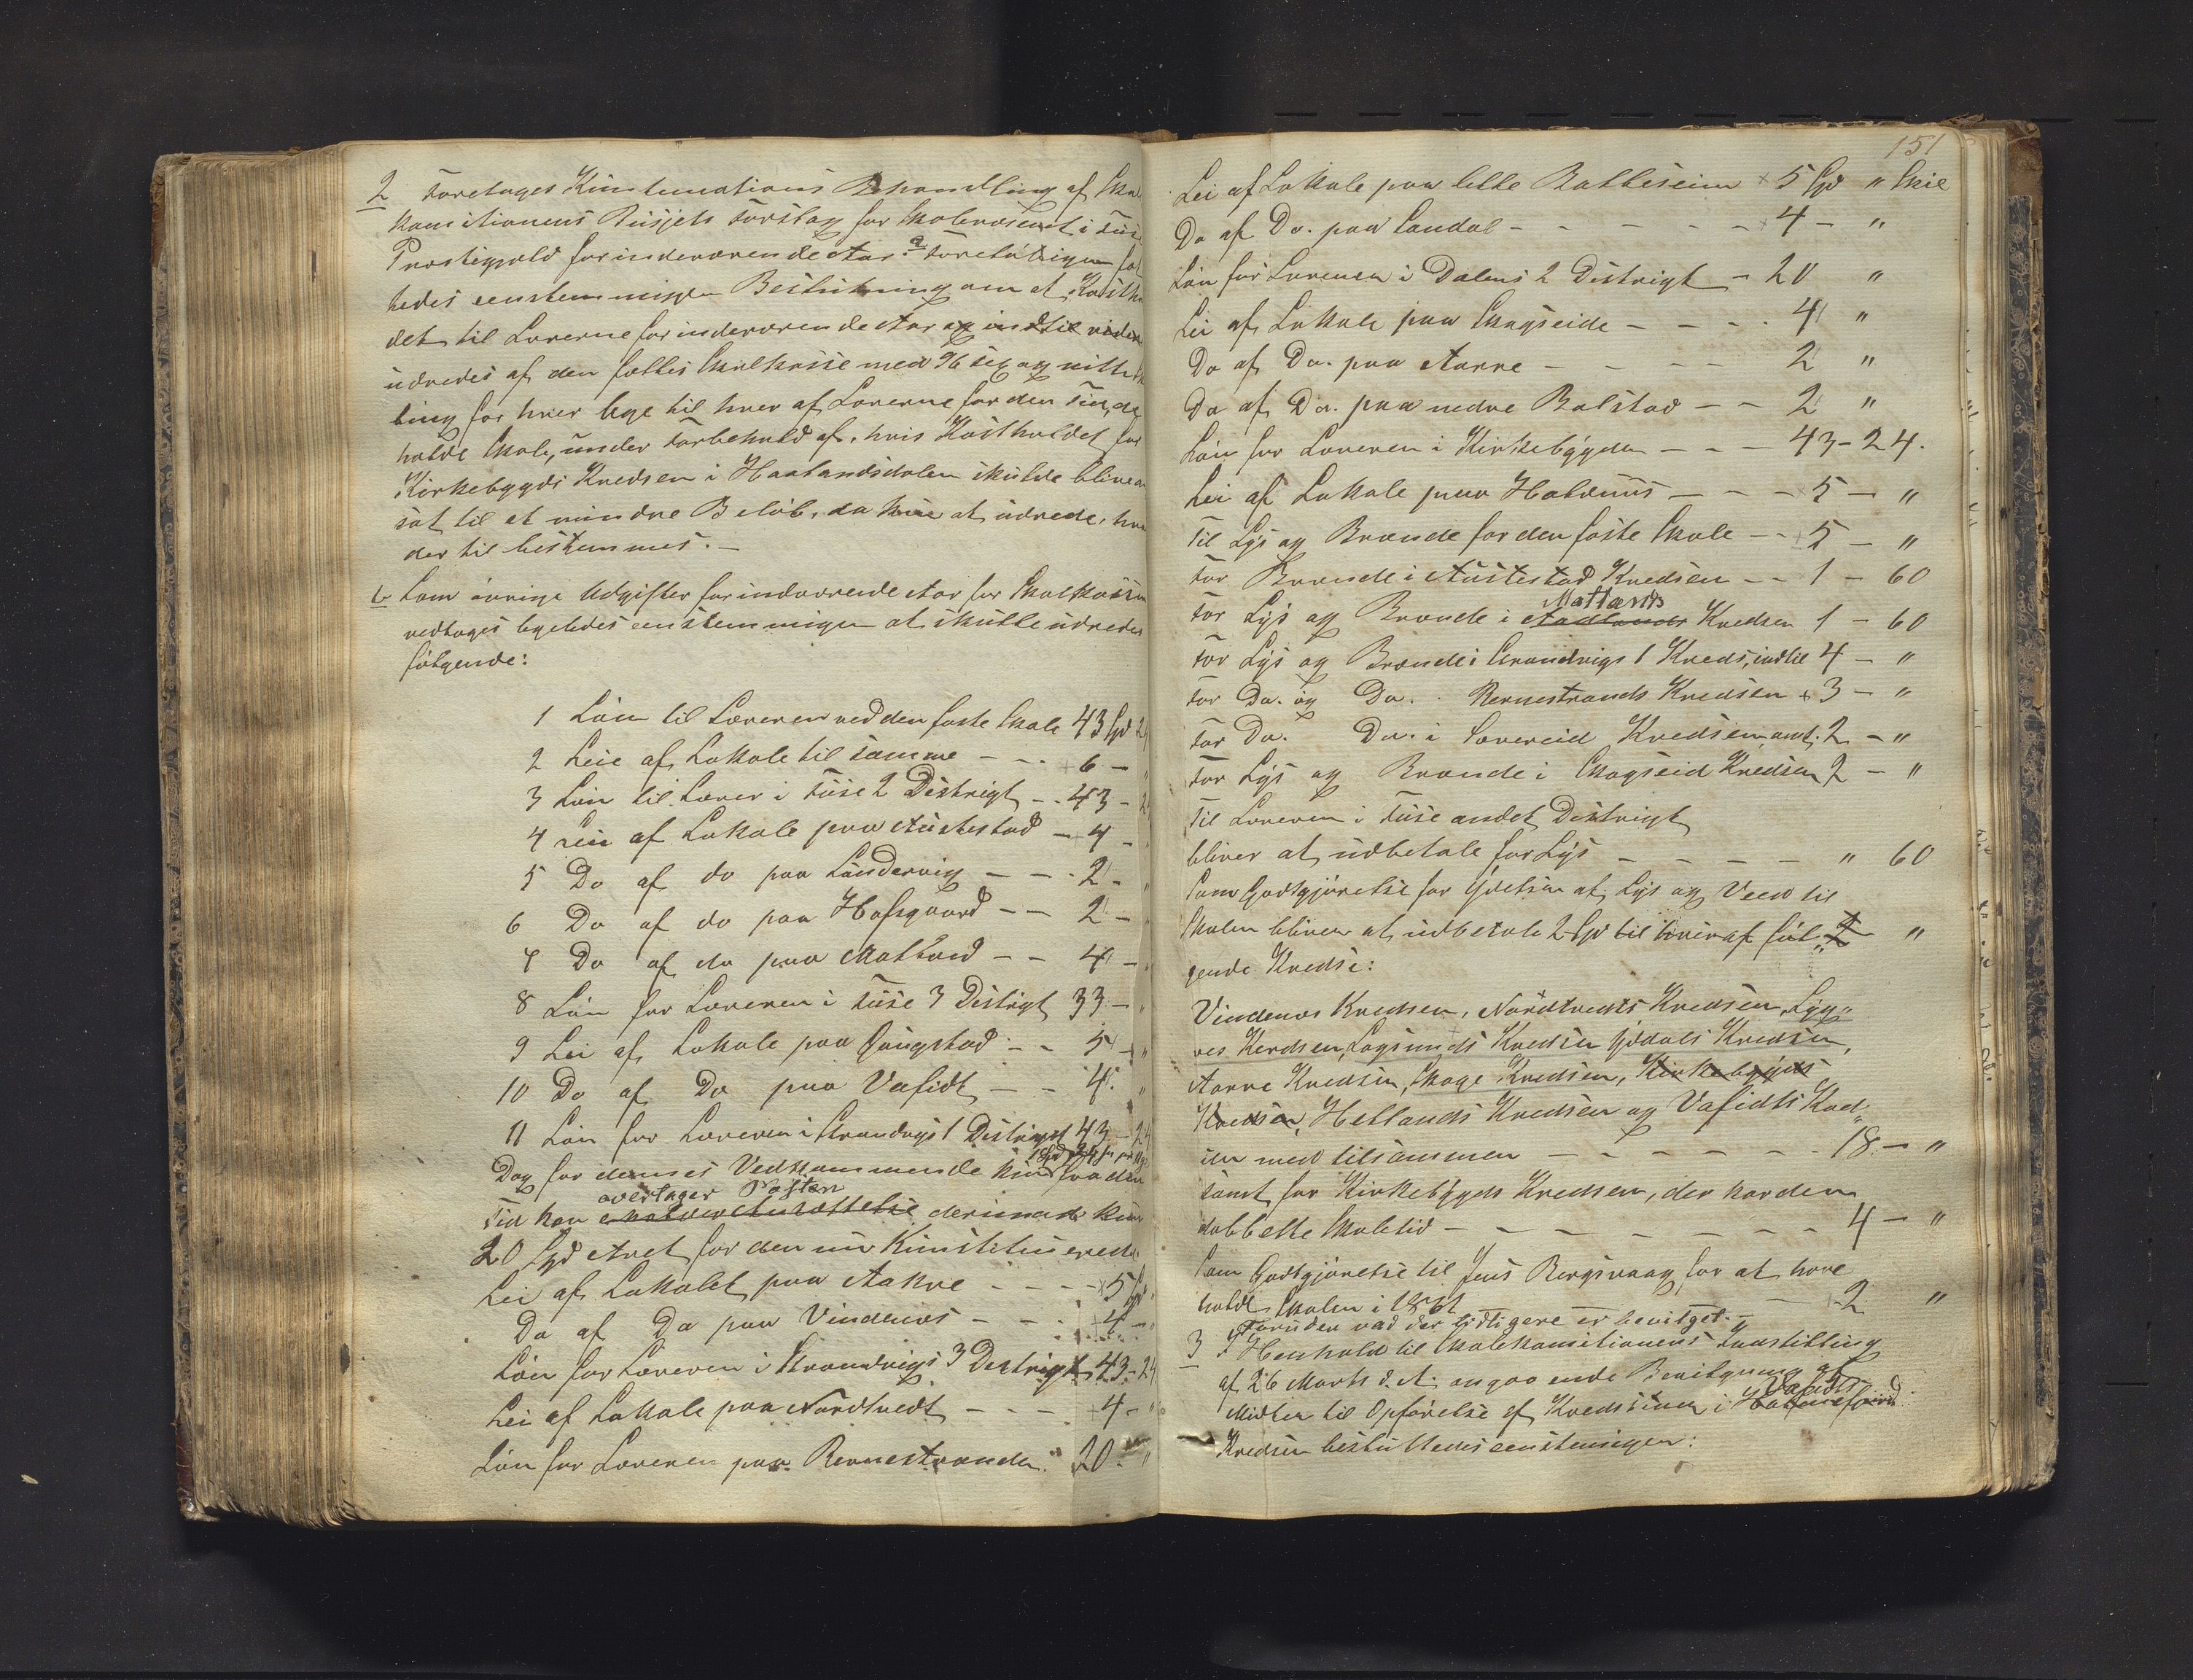 2 Foretoges Kummunations Behandling af Skole
komitionens Busjets Forslag for Skolevæsenet i Fuse
Præstegjeld for indeværende Aar. a Foreløbigen fat
tedes eenstemmigen Beslutning om at Kosthol
det til Lærerne for indeværende Aar og indtil videre
udredes af den fælles Skolkasse med 96 sex og nitti Skil
ling for hver Uge til hver af Lærerne for den Tid, de
holde Skole, under Forbehold af, hvis Kostholdet for
Kirkebygds Kredsen i Haalandsdalen skulde blive an
sat til et mindre Beløb, da kun at udrede, hva
der til bestemmes. –
b Som øvrige Udgifter for indværende Aar for Skolkassen
vedtoges ligeledes eenstemmigen at skulle udredes
følgende:
1 Løn til Læreren ved den faste Skole 43 Spd 24
2 Leie af Lokale til samme - - + 6 – "
3 Løn til Lærer i Fuse 2 Distrigt - - 43 - 24
4 Leie af Lokale paa Austestad – 4 –
5 Do af do paa Søndervig – – - 2 - "
6 Do af do paa Hafsgaard – – 2 – "
7 Do af do paa Matland – – 4 – "
8 Løn for Læreren i Fuse 3 Distrigt 33 – "
9 Lei af Lokale paa Gaugstad – – 5 – "
10 Do af Do paa Vafidt – – 4. "
11 Løn for Læreren i Strandvigs 1 Distrigt 43 – 24
Dog for dennes Vedkommende kun fra den
overtager Posten
Tid han derimod kun
20 Spd Aaret for den nu Kunstituerede
Lei af Lokalet paa Aakre – – – + 5 Spd "
Do af Do paa Vindenes – – . + 4 – "
Løn for Læreren i Strandvigs 3 Destrigt 43 - 24
Lei af Lokale paa Nordtvedt – – – + 4 – "
Løn for Læreren paa Revnestranden " 20. "
151
Lei af Lokale paa lille Balleseim + 5 Spd " Skil
Do af Do. paa Sandal – – – – – + 4 – "
Løn for Læreren i Dalens 2 Distrigt – 20 "
Lei af Lokale paa Skagseide – – – . 4 "
Do af Do. paa Aarre – – – – 2 "
Do af Do. paa nedre Bolstad – – 2 "
Løn for Læreren i Kirkebygden – – – 43 – 24.
Lei af Lokale paa Holdhuus – – – + 5 – "
Til Lys og Brænde for den faste Skole – – + 5 – "
For Brænde i Austestad Kredsen – – 1 – 60
Matlands
For Lys og Brænde i Kredsen 1 – 60
For Lys og Brænde i Strandvigs 1 Kreds, indtil 4 – "
For Do. og Do. . Revnestrands Kredsen + 3 – "
For Do. Do. i Sævereid Kredsen, omt. 2 – "
For Lys og Brænde i Skogseid Kredsen 2 – "
Til Læreren i Fuse andet Distrigt
bliver at udbetale for Lys – – – – – " 60
Som Godtgjørelse for Ydelsen af Lys og Veed til
Skolen bliver at udbetale 2 Spd til hver af føl- 2 "
gende Kredse:
Vindenes Kredsen, Nordtvedts Kredsen, Lyg-
res Kredsen, Sagsunds Kredsen Ydals Kredsen,
Aarre Kredsen, Skoge Kredsen, Kirkebygds
Kredsen, Hellands Kredsen og Vafidts Kred-
sen med tilsammen – – – – – – – 18. – "
samt for Kirkebygds Kredsen, der har den
dobbelte Skoletid – – – – – – – 4 – "
Som Godtgjørelse til Jens Bergsvaag for at have
holdt Skolen i – – – – +2 "
Foruden vad der tidligere er bevilget. –
3 I Henhold til Skolekomitionens Indstilling
af 26 Marts d. A. angaaende Bevilgning af
Vafidts
Midler til Opførelse af Kredsstuer i
Kredsen besluttedes eenstemigen: